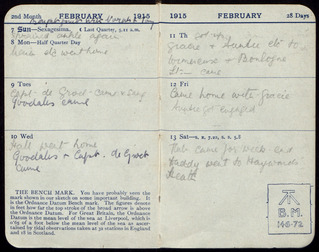 2nd Month FEBRUARY 1915
7 Sun—Sexagesima. ☾ Last Quarter, 5.11 a.m.
ankle again
8 Mon—Half Quarter Day
went home
9 Tues
Capt. de Groot came & Suz
Goodalis came
10 Wed
Hall went home
Goodalis & Capt. de Groot
came
THE BENCH MARK. You have probably seen the
mark shown in our sketch on some important building. It
is the Ordnance Datum Bench Mark. The figures denote
is feet how far the top stroke of the broad arrow is above
the Ordnance Datum. For Great Britain, the Ordnance
Datum is the mean level of the sea at Liverpool, which is
of a foot below the mean level of the sea as ascer-
tained by tidal observations taken at 32 stations in England
and 8 in Scotland.
1915 FEBRUARY 28 Days
11 Th got up
Gracie & Auntie eli to
& Boulogne
came
12 Fri
Came home with Gracie
got engaged
13 Sat—s. r. 7.20, s. s. 5.8
came for week-end
Daddy went to Haywards
Heath
B.M.
146·72